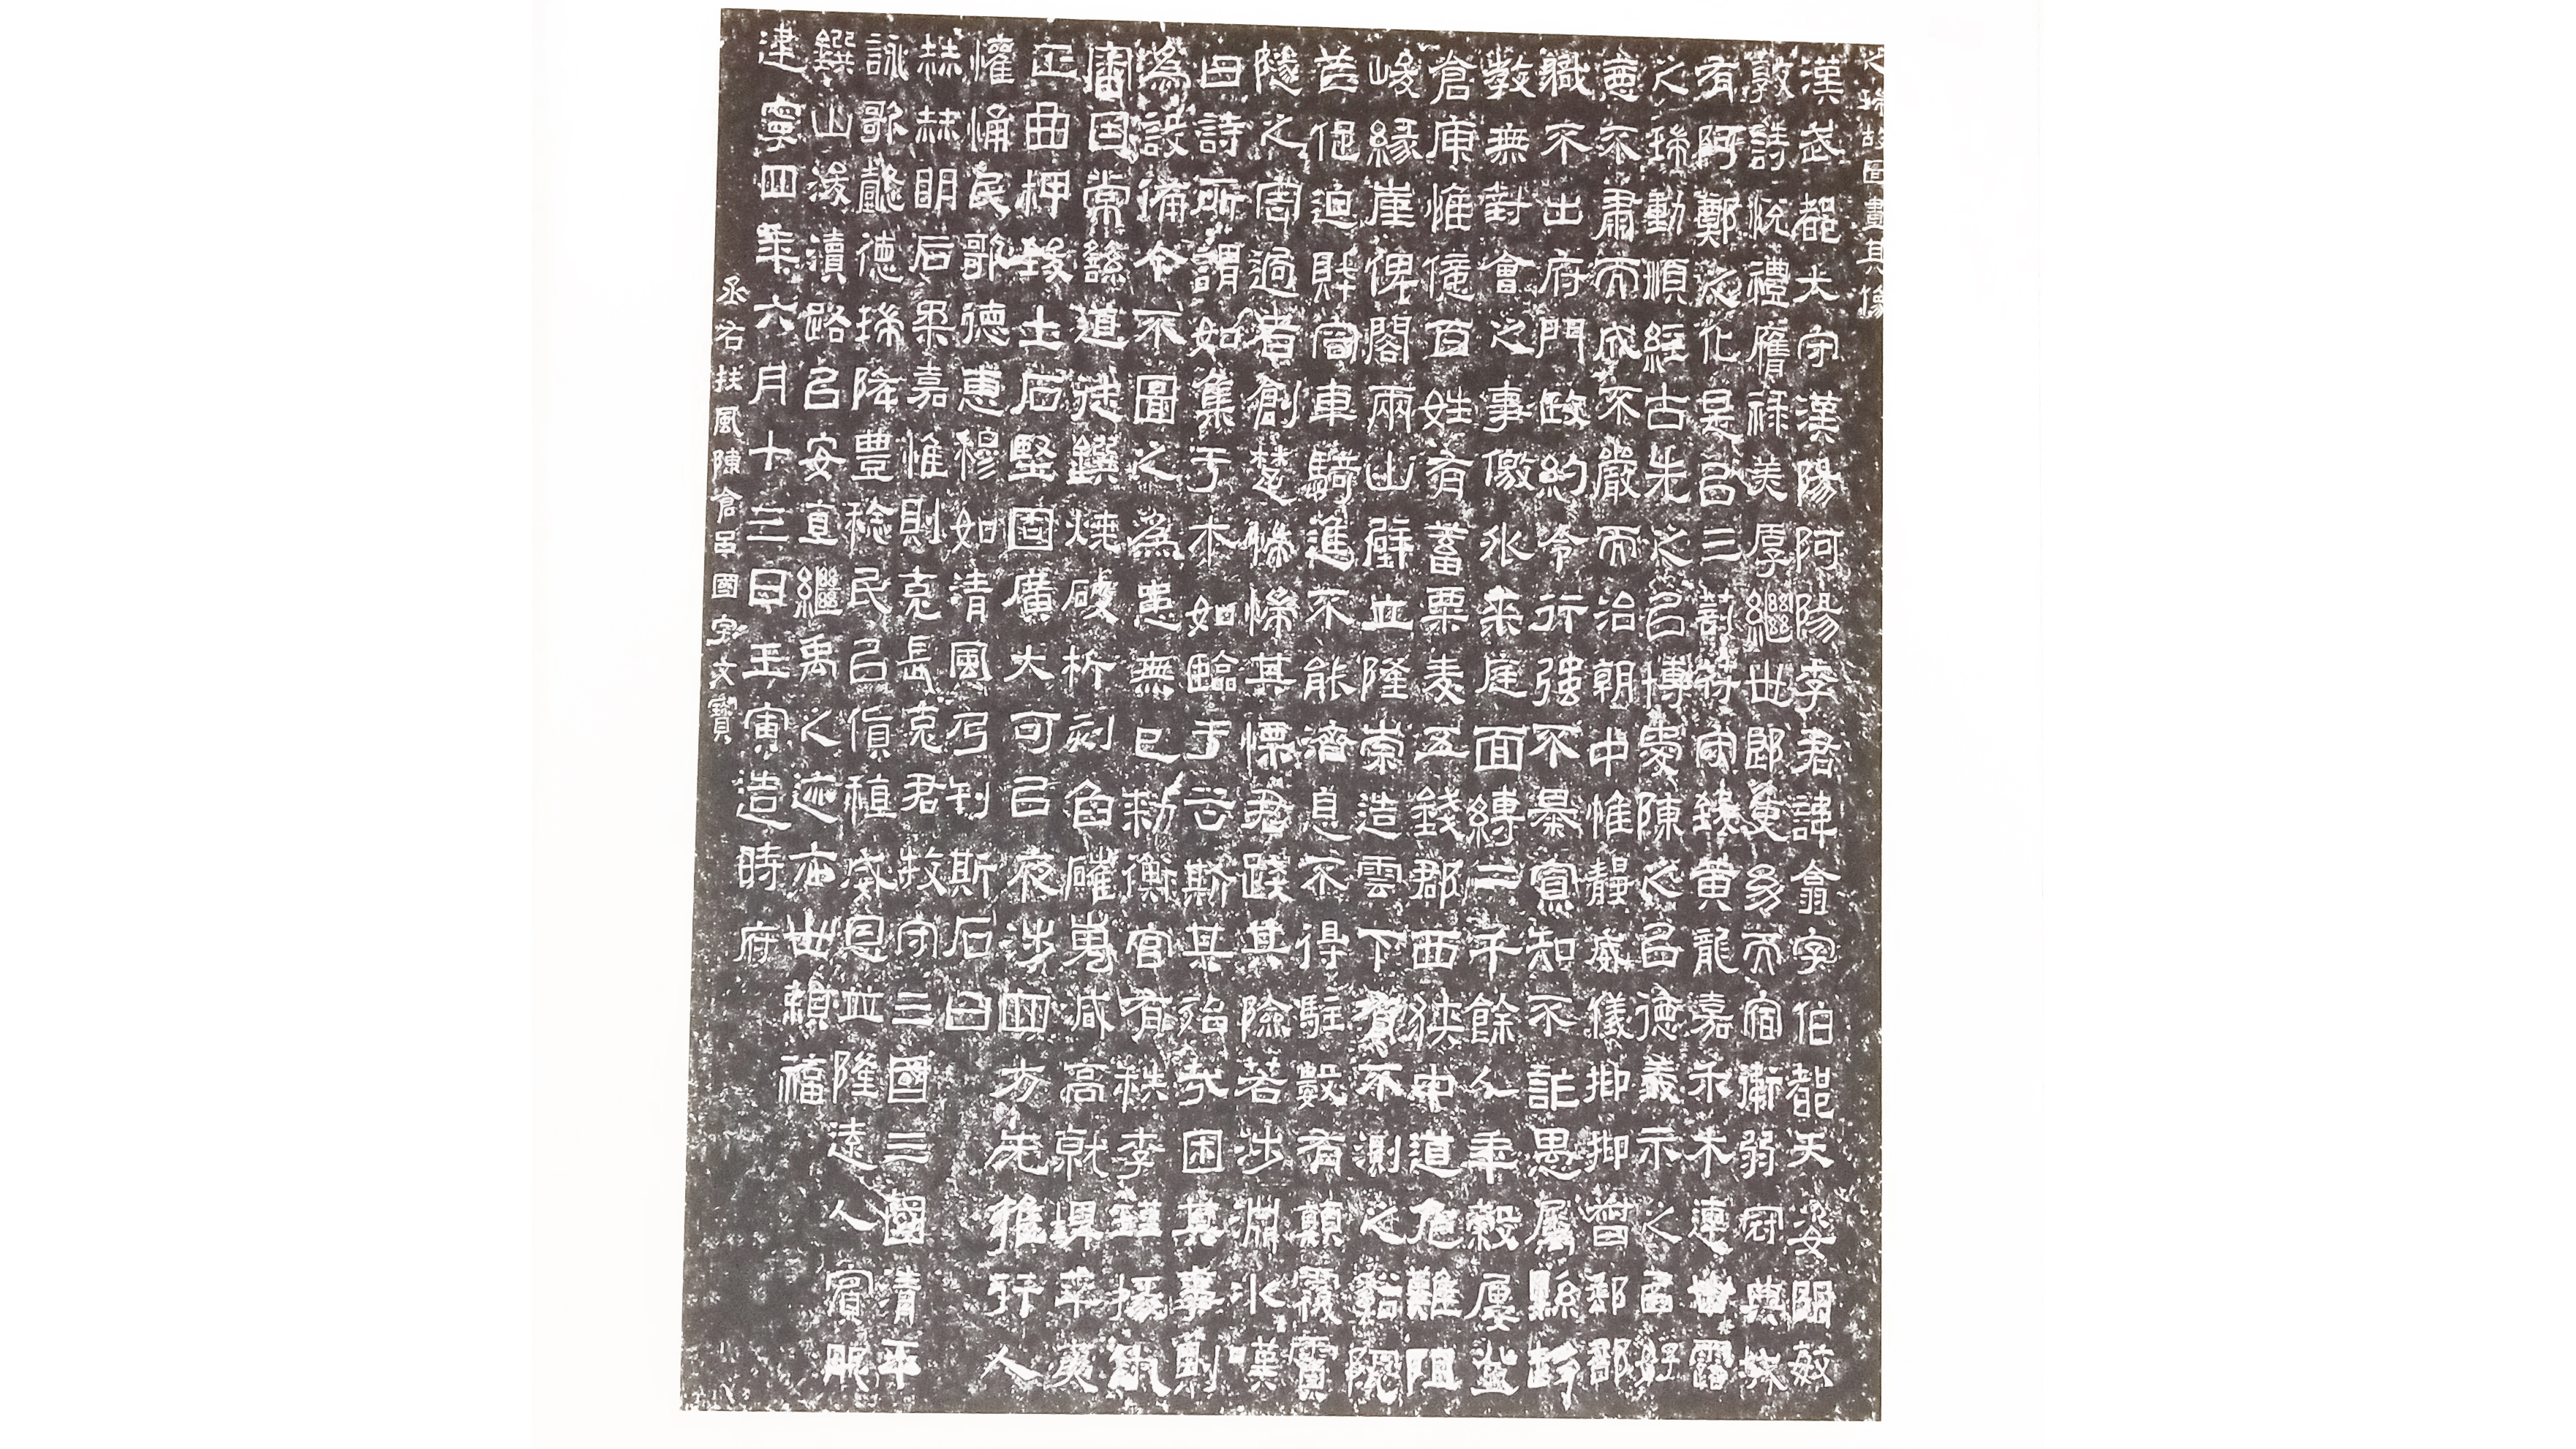 之瑞故圖畫其像
漢武都太守漢陽阿陽李君諱翕字伯都天姿明敏
敦詩悅禮膺祿美厚繼世郎吏幼而宿衛弱冠典城
有阿鄭之化是以三剖符守致黃龍嘉禾木連甘露
之瑞動順經古先之以博愛陳之以德義示之以好
惡不肅而成不嚴而治朝中惟靜威儀抑抑督郵部
職不出府門政約令行強不暴寡知不詐愚屬縣趍
教無對會之事儌外來庭面縛二千餘人年穀屢登
倉庾惟億百姓有蓄粟麥五錢郡西狹中道危難阻
峻緣崖俾閣兩山壁立隆崇造雲下有不測之谿阨
芢促迫財容車騎進不能濟息不得駐數有顛覆霣
隧之害過者創楚惴惴其慄君踐其險若涉淵冰嘆
曰詩所謂如集于木如臨于谷斯其殆哉困其事則
為設備今不圖之為患無已勑衡官有秩李瑾掾仇
審因常繇道徒鐉燒破析刻臽磪嵬減高就埤平夷
正曲柙致土石堅固廣大可以夜涉四方无雍行人
懽悀民歌德惠穆如清風乃刊斯石曰
赫赫明后柔嘉惟則克長克君牧守三國三國清平
詠歌懿德瑞降豐稔民以貨稙威恩並隆遠人賓服
鐉山浚瀆路以安直繼禹之迹亦世賴福
建寧四年六月十三日壬寅造時府
丞右扶風陳倉呂國字文寶